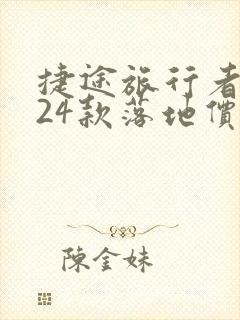 捷途旅行者
24款落地價
陳金妹